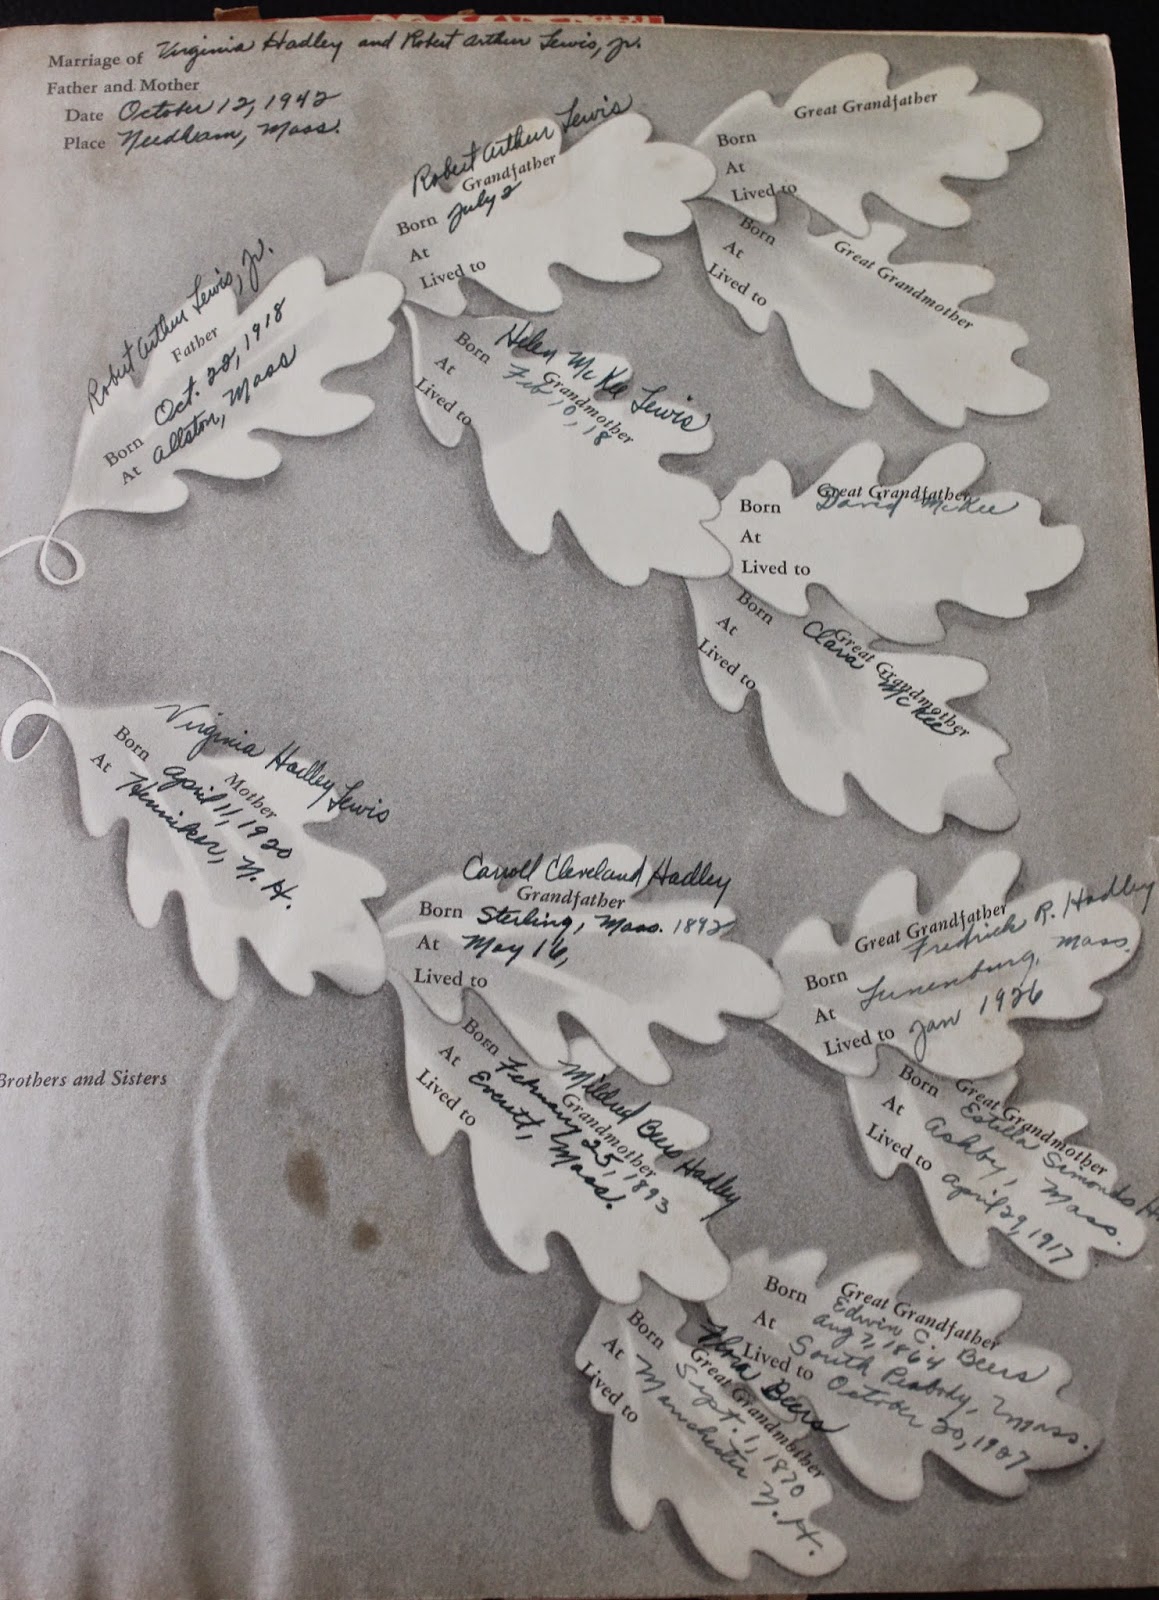 Marriage of Virginia Hadley and Robert Arthur Lewis, Jr.
Father and Mother
Date October 12, 1942
Place Needham, Mass.
Robert Arthur Lewis, Jr.
Father
Born Oct. 22, 1918
At Allston, Mass
Robert Arthur Lewis
Grandfather
Born July 2
At
Lived to
Great Grandfather
Born
At
Lived to
Great Grandmother
Born
At
Lived to
Helen McKee Lewis
Grandmother
Born Feb 10, 18
At
Lived to
Great Grandfather
Born David McKee
At
Lived to
Great Grandmother
Born Clara McKee
At
Lived to
Virginia Hadley Lewis
Mother
Born April 11, 1920
At Henniker, N.H.
Carroll Cleveland Hadley
Grandfather
Born Sterling, Mass. 1892
At May 16,
Lived to
Great Grandfather
Fredrick R. Hadley
Born Lunenburg, Mass.
At
Lived to Jan 1926
Great Grandmother
Estella Simonds H
Born
At Ashby, Mass.
Lived to April 29, 1917
Mildred Beers Hadley
Grandmother
Born February 25, 1893
At Everett, Mass.
Lived to
Great Grandfather
Edwin C. Beers
Born Aug 7, 1864
At South Peabody, Mass.
Lived to October 20, 1927
Beers
Great Grandmother
Born Sept. 1, 1870
At Manchester N.H.
Lived to
Brothers and Sisters